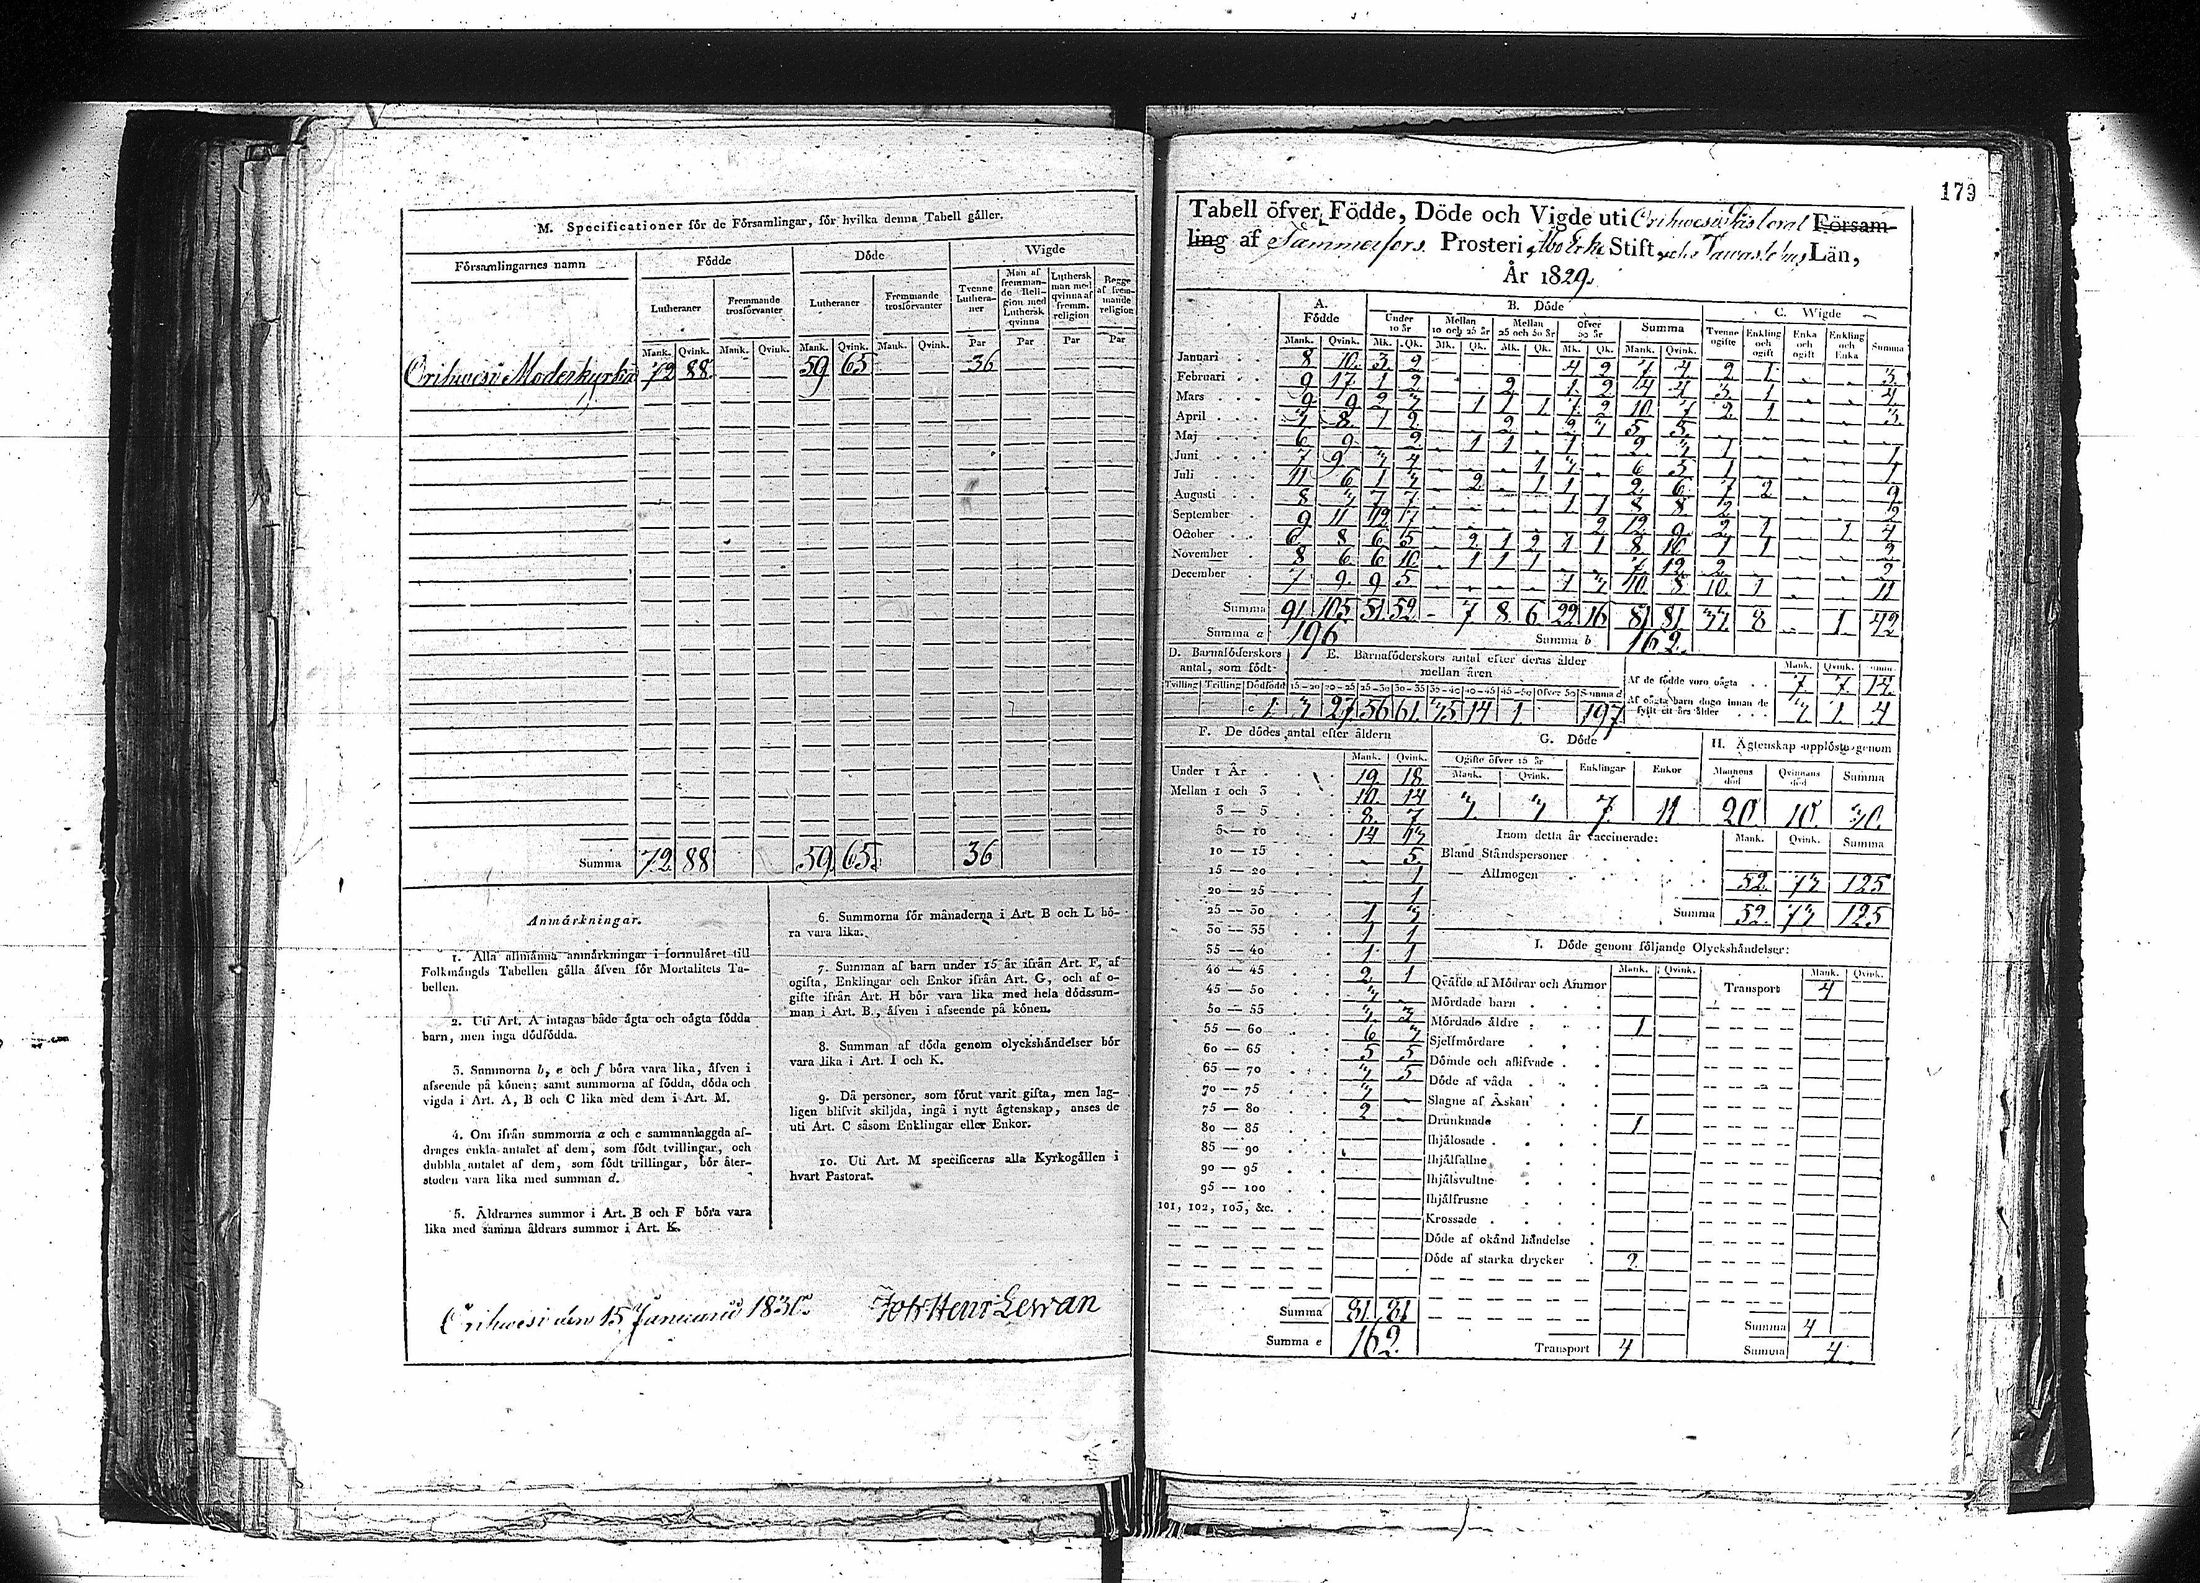 M. Specificationer för de Församlingar, för hvilka denna Tabell gäller.
Församlingarnes namn
Födde
Döde
Wigde
Lutheraner
Fremmande trosförvanter
Lutheraner
Fremmande trosförvanter
Tvenne Lutheraner
Man af fremmande Religion med Luthersk qvinna
Luthersk man med qvinna af fremm. religion
Begge af fremmande religion
Mank. Qvink. Mank. Qvink. Mank. Qvink. Mank. Qvink. Par Par Par Par
Orihwesi Moderkyrka 72 88 59 65 36
Summa 72 88 59 65 36
Anmärkningar.
1. Alla allmänna anmärkningar i formuläret till
Folkmängds Tabellen gälla äfven för Mortalitets Ta-
bellen.
2. Uti Art. A intagas både ägta och oägta födda
barn, men inga dödfödda.
3. Summorna b, e och f böra vara lika, äfven i
afseende på könen; samt summorna af födda, döda och
vigda i Art. A, B och C lika med dem i Art. M.
4. Om ifrån summorna a och c sammanlaggda af-
drages enkla antalet af dem, som födt tvillingar, och
dubbla antalet af dem, som födt trillingar, bör åter-
stoden vara lika med summan d.
5. Äldrarnes summor i Art. B och F böra vara
lika med samma äldrars summor i Art. K.
6. Summorna för månaderna i Art. B och L bö-
ra vara lika.
7. Summan af barn under 15 år ifrån Art. F, af
ogifta, Enklingar och Enkor ifrån Art. G, och af o-
gifte ifrån Art. H bör vara lika med hela dödssum-
man i Art. B., äfven i afseende på könen.
8. Summan af döda genom olyckshändelser bör
vara lika i Art. I och K.
9. Då personer, som förut varit gifta, men lag-
ligen blifvit skiljda, ingå i nytt ägtenskap, anses de
uti Art. C såsom Enklingar eller Enkor.
10. Uti Art. M specificeras alla Kyrkogällen i
hvart Pastorat.
Orihwesi den 15 Januarii 1830. Joh Henr Lewan
179
Tabell öfver Födde, Döde och Vigde uti Orihwesi Pastorat Försam-
ling af Tammerfors Prosteri, Åbo Erke Stift och Tawastehus Län,
År 1829.
A. Födde
B. Döde
C. Wigde
Under 10 år
Mellan 10 och 25 år
Mellan 25 och 50 år
Öfver 50 år
Summa
Tvenne ogifte
Enkling och ogift
Enka och ogift
Enkling och Enka
Summa
Mank. Qvink. Mk. Qk. Mk. Qk. Mk. Qk. Mk. Qk. Mank. Qvink.
Januari 8 10 3 2 4 2 7 4 2 1 3
Februari 9 17 1 2 2 1 2 4 4 3 1 4
Mars 9 9 2 3 1 1 1 7 2 10 7 2 1 3
April 3 8 1 2 2 2 3 5 5
Maj 6 9 2 1 1 1 2 3 1 1
Juni 7 9 3 4 1 3 6 5 1 1
Juli 11 6 1 3 2 1 1 2 6 7 2 9
Augusti 8 3 7 7 1 1 8 8 2 2
September 9 11 12 7 2 12 9 2 1 1 4
October 6 8 6 5 2 1 2 1 1 8 10 1 1 2
November 8 6 6 10 1 1 1 7 12 2 2
December 7 9 9 5 1 3 10 8 10 1 11
Summa 91 105 51 52 7 8 6 22 16 81 81 33 8 1 42
Summa a 196 Summa b 162
D. Barnaföderskors antal, som födt
E. Barnaföderskors antal efter deras ålder mellan åren
Tvilling Trilling Dödfödt 15–20 20–25 25–30 30–35 35–40 40–45 45–50 Öfver 50 Summa d
c 1 3 27 56 61 35 14 1 197
Mank. Qvink. Summ.
Af de födde voro oägta 7 7 14
Af oägta barn dogo innan de fyllt ett års ålder 3 1 4
F. De dödes antal efter åldern
Mank. Qvink.
Under 1 År 19 18
Mellan 1 och 3 10 14
3 — 5 8 7
5 — 10 14 13
10 — 15 5
15 — 20 1
20 — 25 1
25 — 30 1 3
30 — 35 1 1
35 — 40 1 1
40 — 45 2 1
45 — 50 3
50 — 55 3 3
55 — 60 6 3
60 — 65 5 5
65 — 70 3 5
70 — 75 3
75 — 80 2
80 — 85
85 — 90
90 — 95
95 — 100
101, 102, 103, &c.
Summa 81 81
Summa e 162
G. Döde
Ogifte öfver 15 år
Enklingar
Enkor
Mank. Qvink.
3 3 7 11
H. Ägtenskap upplöste genom
Mannens död
Qvinnans död
Summa
20 10 30
Inom detta år vaccinerade: Mank. Qvink. Summa
Bland Ståndspersoner
— Allmogen 52 73 125
Summa 52 73 125
I. Döde genom följande Olyckshändelser:
Mank. Qvink. Mank. Qvink.
Qväfde af Mödrar och Ammor Transport 4
Mördade barn
Mördade äldre 1
Sjelfmördare
Dömde och aflifvade
Döde af våda
Slagne af Åskan
Drunknade 1
Ihjälosade
Ihjälfallne
Ihjälsvultne
Ihjälfrusne
Krossade
Döde af okänd händelse
Döde af starka drycker 2
Summa 4
Transport 4 Summa 4